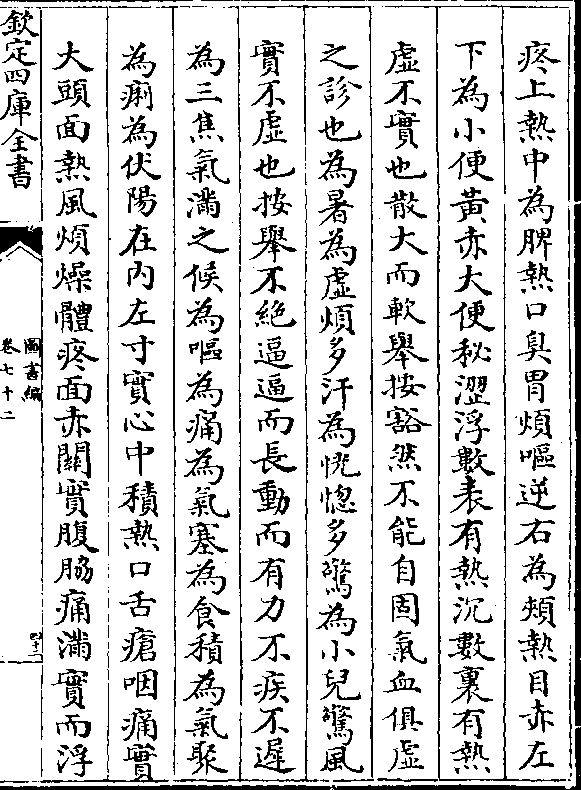 疼上熱中為脾熱口臭胃煩嘔逆右為頰熱目赤左
下為小便黃赤大便秘澀浮數表有熱沉數裏有熱
虛不實也散大而軟舉按豁然不能自固氣血俱虛
之診也為暑為虛煩多汗為恍惚多驚為小兒驚風
實不虛也按舉不絕逼逼而長動而有力不疾不遲
為三焦氣滿之候為嘔為痛為氣塞為食積為氣聚
為痢為伏陽在內左寸實心中積熱口舌瘡咽痛實
大頭面熱風煩燥體疼面赤關實腹脇痛滿實而浮
欽定四庫全書
圖書編
卷七十二